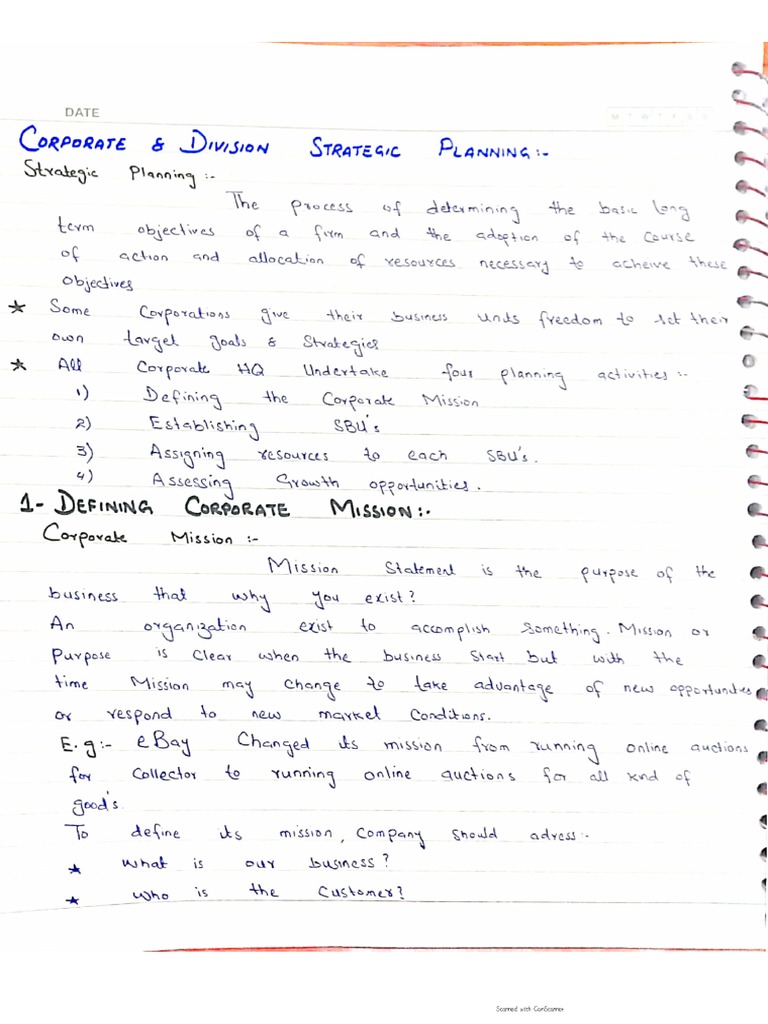 DATE
M T W T F S S
CORPORATE & DIVISION STRATEGIC PLANNING:-
Strategic Planning :-
The process of determining the basic long
term objectives of a firm and the adoption of the course
of action and allocation of resources necessary to acheive these
objectives
* Some Corporations give their business units freedom to set their
own target goals & Strategies
* All Corporate HQ Undertake four planning activities :-
1) Defining the Corporate Mission
2) Establishing SBU's
3) Assigning resources to each SBU's.
4) Assessing Growth opportunities.
1- DEFINING CORPORATE MISSION:-
Corporate Mission :-
Mission Statement is the purpose of the
business that why you exist?
An organization exist to accomplish Something. Mission or
Purpose is clear when the business Start but with the
time Mission may change to take advantage of new opportunities
or respond to new market Conditions.
E.g:- eBay Changed its mission from running online auctions
for Collector to running online auctions for all kind of
good's.
To define its mission, Company Should adress:-
* What is our business?
* Who is the Customer?
Scanned with CamScanner